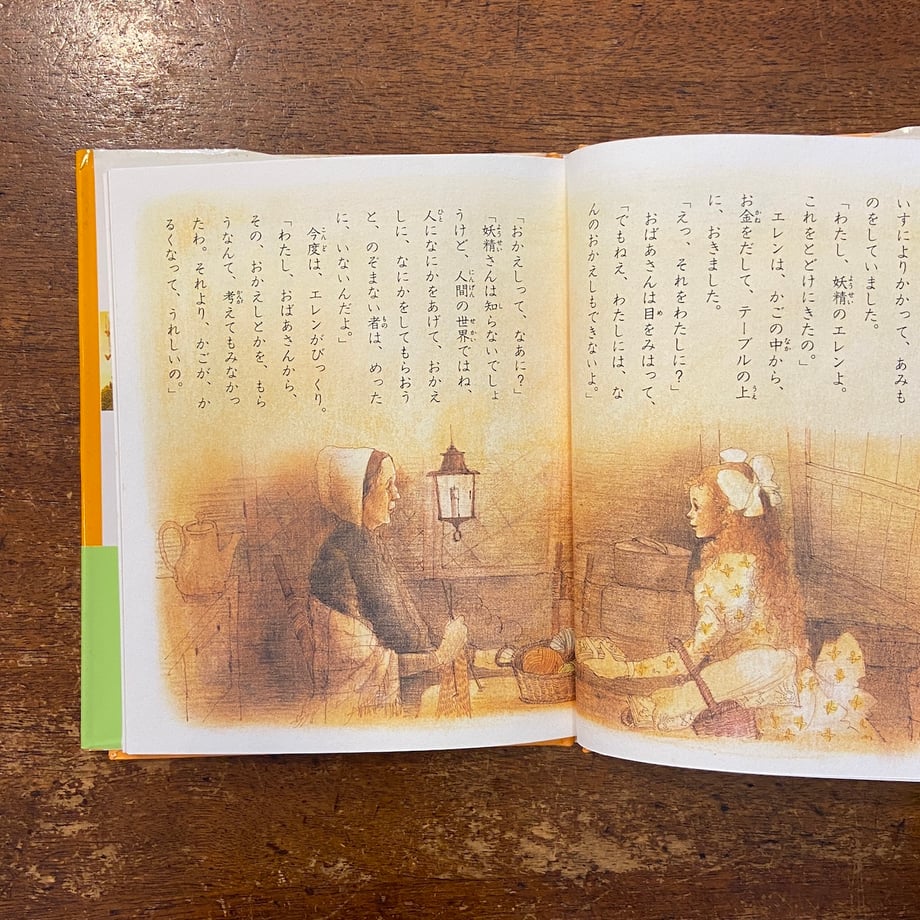 いすによりかかって、あみも
のをしていました。
「わたし、妖精のエレンよ。
これをとどけにきたの。」
エレンは、かごの中から、
お金をだして、テーブルの上
に、おきました。
「えっ、それをわたしに？」
おばあさんは目をみはって、
「でもねえ、わたしには、な
んのおかえしもできないよ。」
「おかえしって、なあに？」
「妖精さんは知らないでしょ
うけど、人間の世界ではね、
人になにかをあげて、おかえ
しに、なにかをしてもらおう
と、のぞまない者は、めった
に、いないんだよ。」
今度は、エレンがびっくり。
「わたし、おばあさんから、
その、おかえしとかを、もら
うなんて、考えてもみなかっ
たわ。それより、かごが、か
るくなって、うれしいの。」